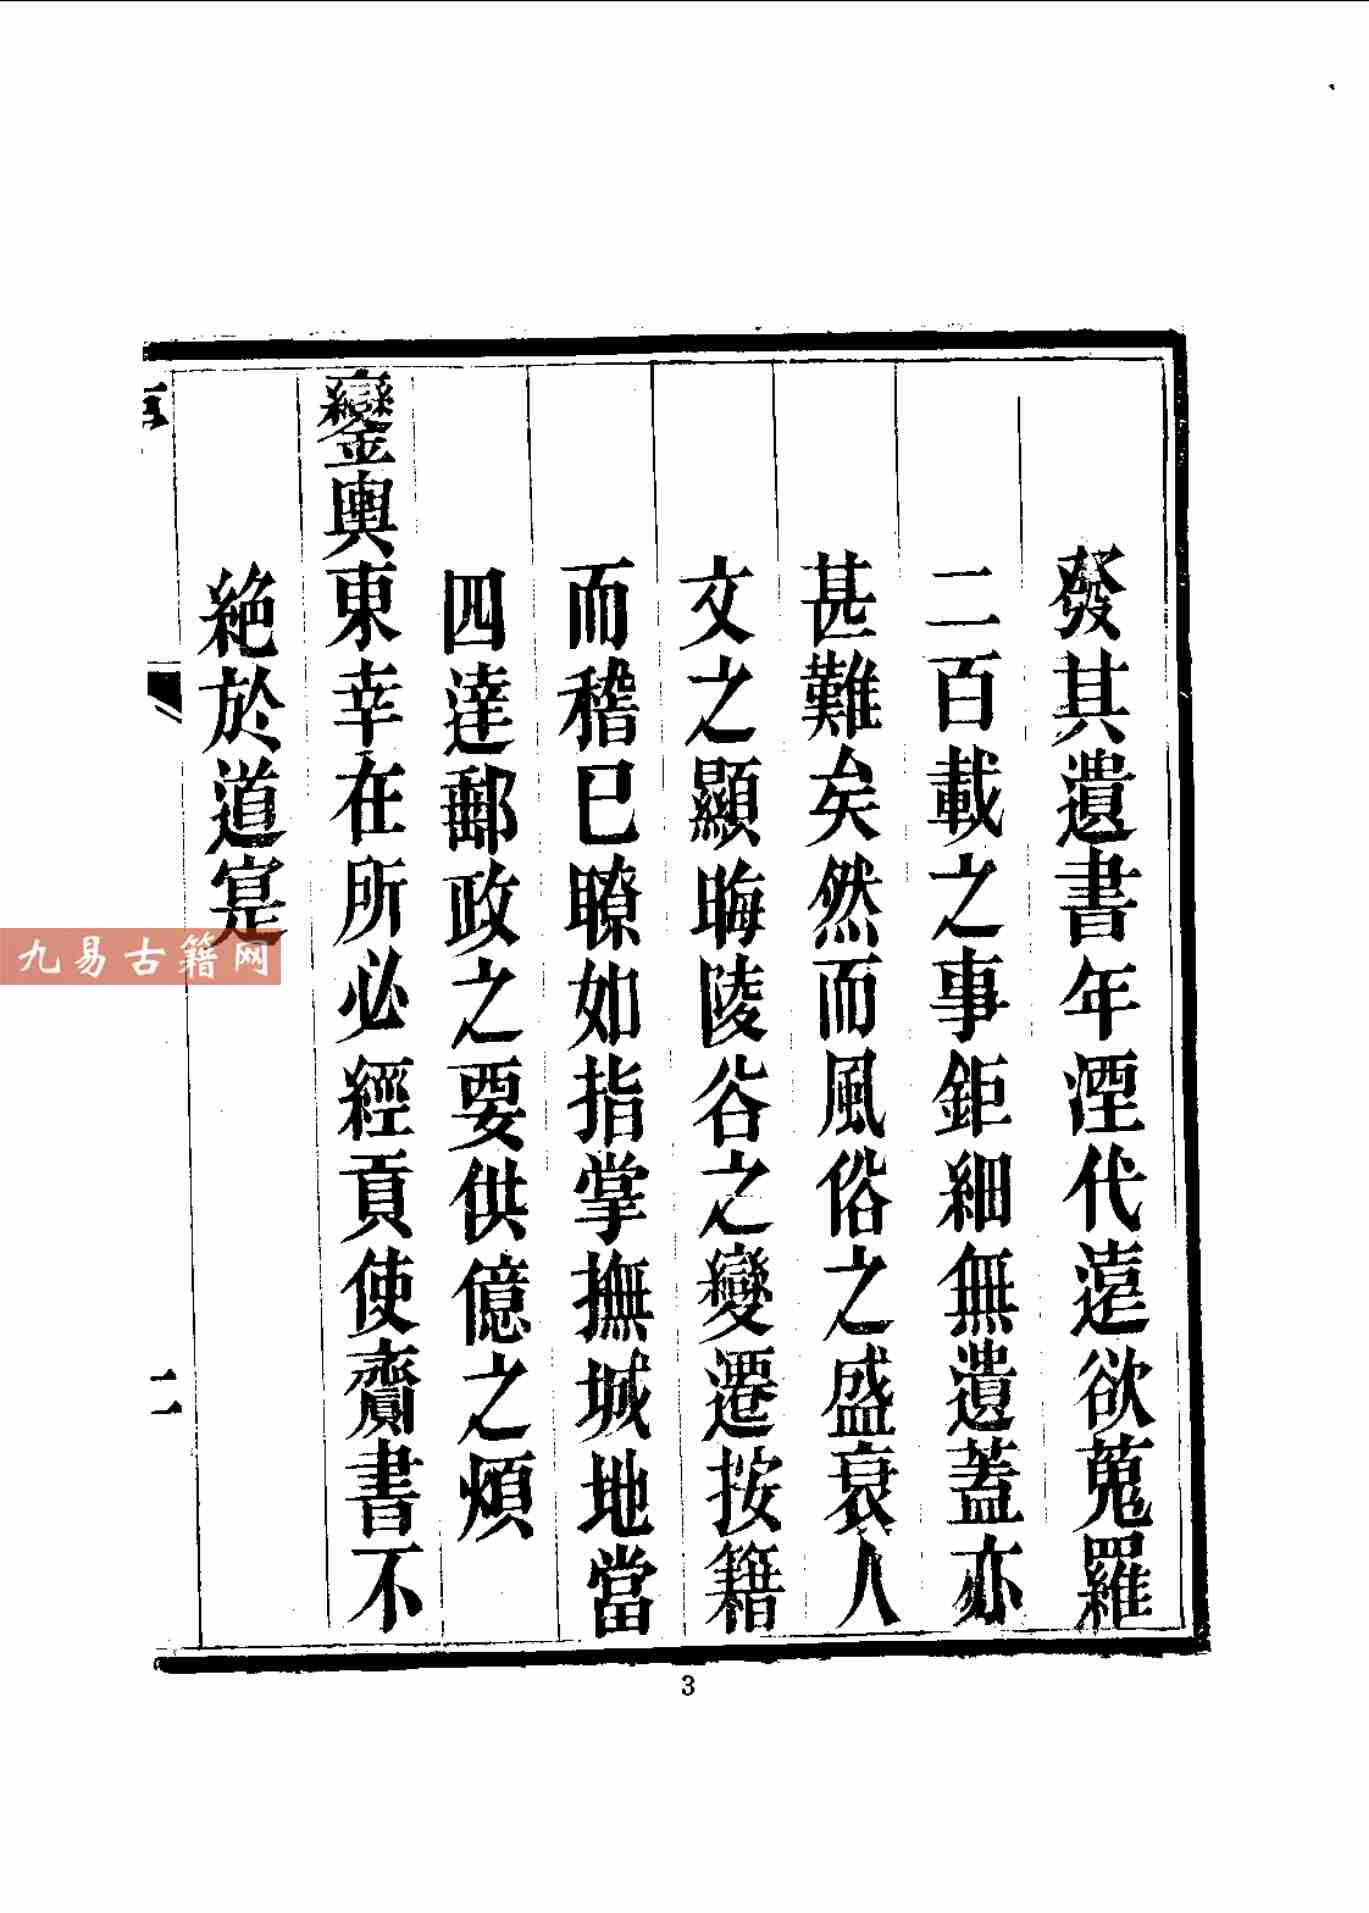 發其遺書年湮代遠欲蒐羅
二百載之事鉅細無遺蓋亦
甚難矣然而風俗之盛衰人
文之顯晦陵谷之變遷按籍
而稽已瞭如指掌撫城地當
四達郵政之要供億之煩
鑾輿東幸在所必經貢使齎書不
絶於道寔
二
九易古籍网
3